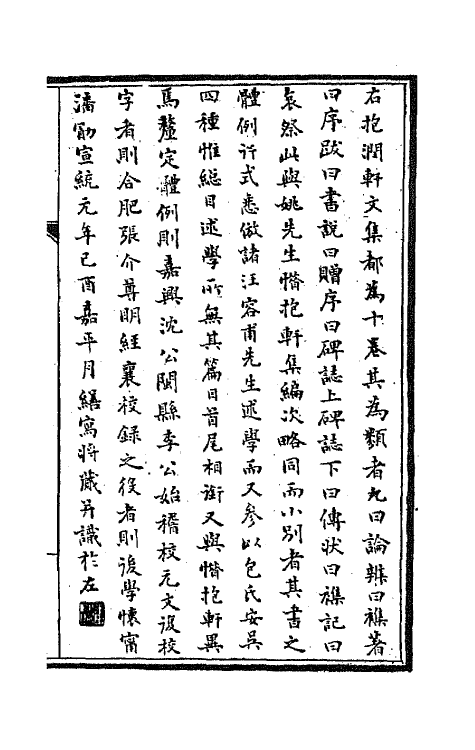 右抱潤軒文集都為十卷其為類者九曰論辨曰襍著
曰序跋曰書說曰贈序曰碑誌上碑誌下曰傳狀曰襍記曰
哀祭此與姚先生惜抱軒集編次略同而小別者其書之
體例行式悉倣諸汪容甫先生述學而又參以包氏安吳
四種惟總目述學所無其篇目首尾相銜又與惜抱軒異
焉釐定體例則嘉興沈公閩縣李公始稽校元文設校
字者則合肥張介尊明經襄校錄之役者則後學懷甯
潘勛宣統元年己酉嘉平月繕寫將蕆并識於左